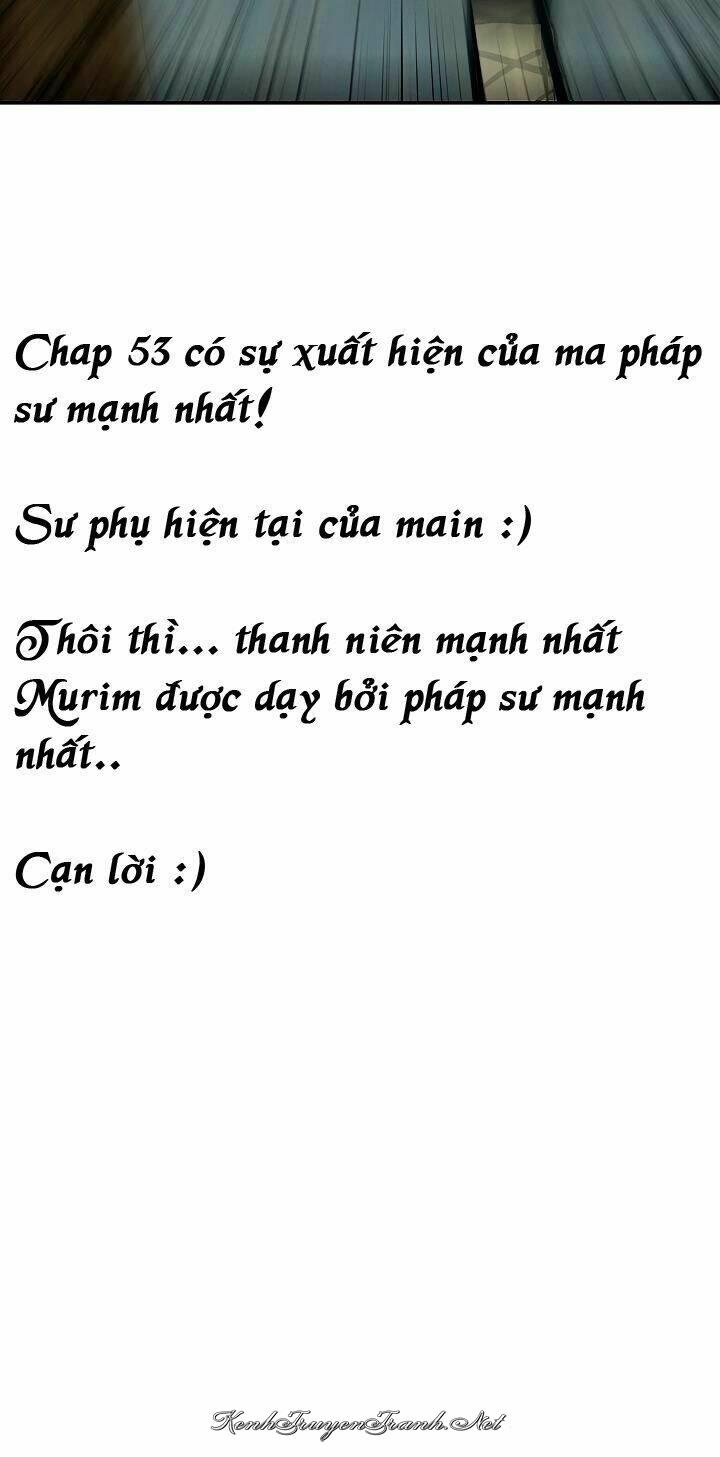 Chap 53 có sự xuất hiện của ma pháp
sư mạnh nhất!
Sư phụ hiện tại của main :)
Thôi thì... thanh niên mạnh nhất
Murim được dạy bởi pháp sư mạnh
nhất..
Cạn lời :)
KenhTruyenTranh.Net